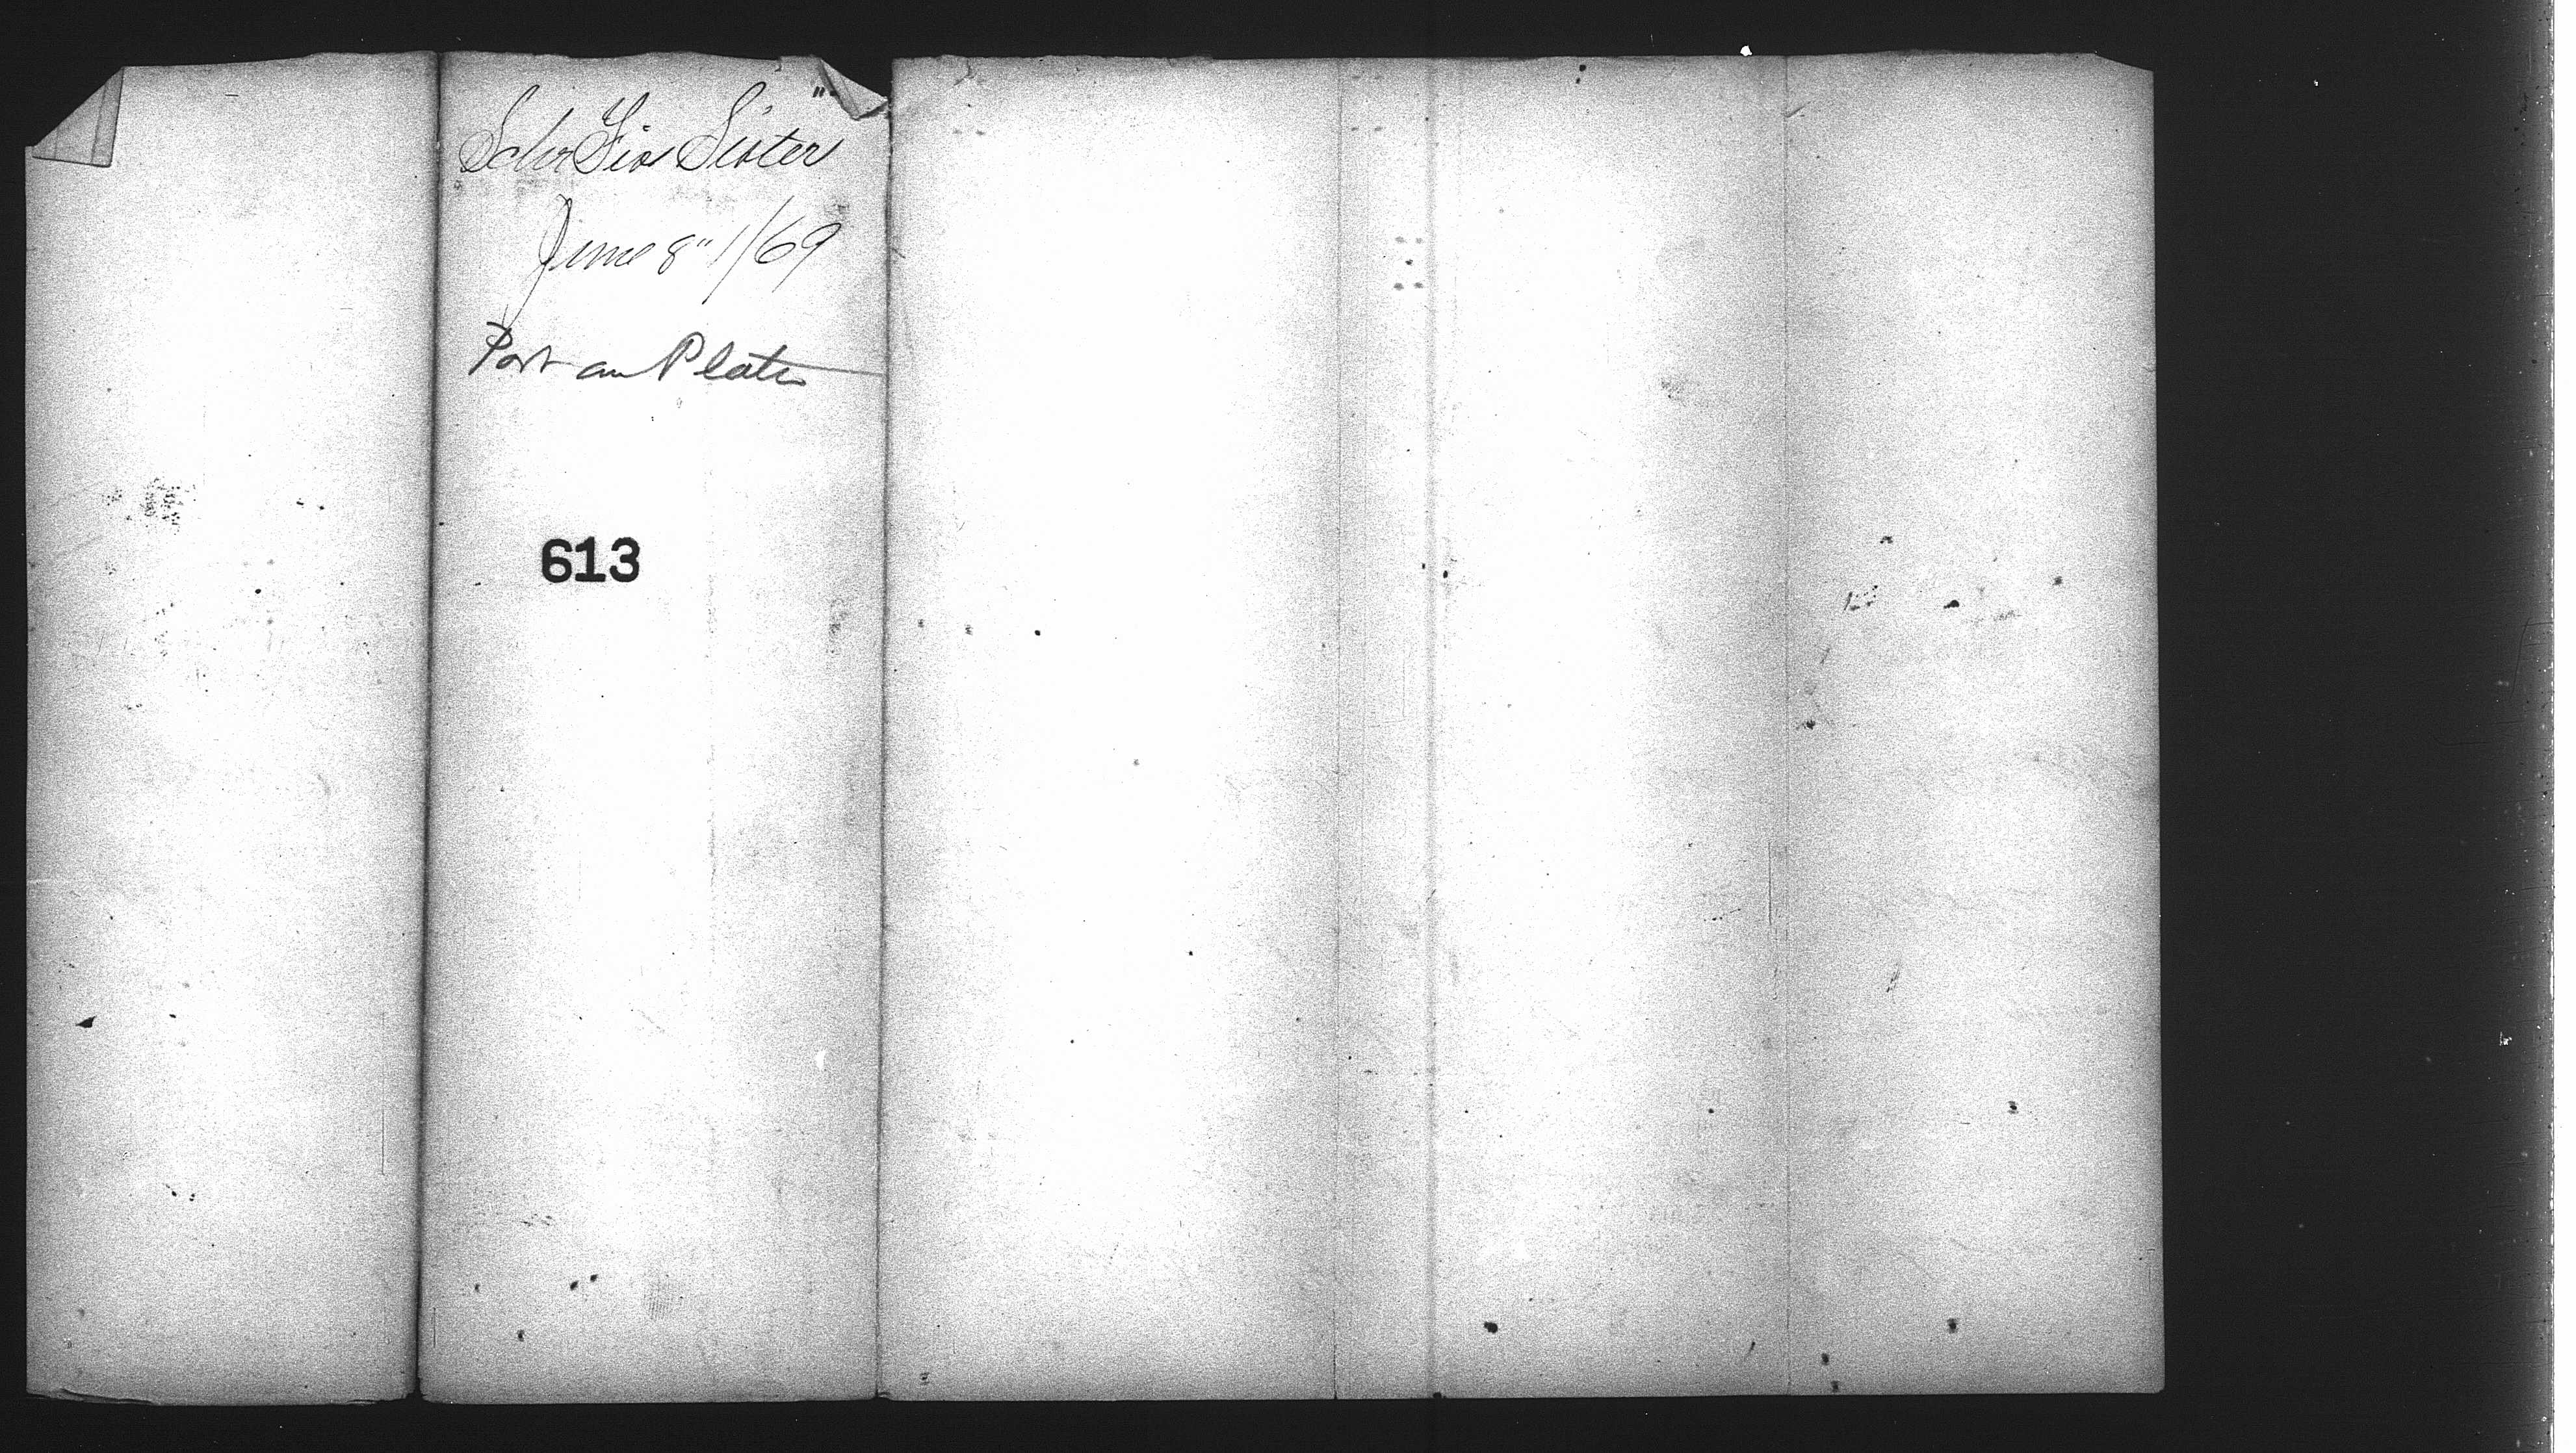 Schr Six Sisters
June 8" 1/69
Port au Plate
613